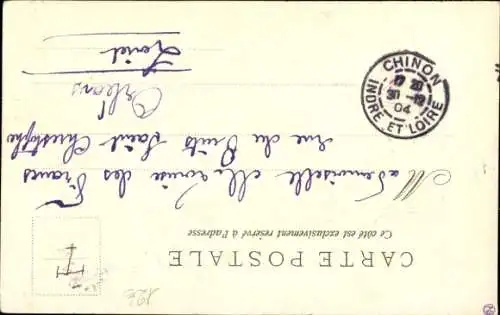 CARTE POSTALE
Ce côté est exclusivement réservé à l'adresse
Mademoiselle Louise des Francs
rue du Puits Saint Christophe
Orléans
Loiret
CHINON
17 20
30 -12
04
INDRE-ET-LOIRE
T